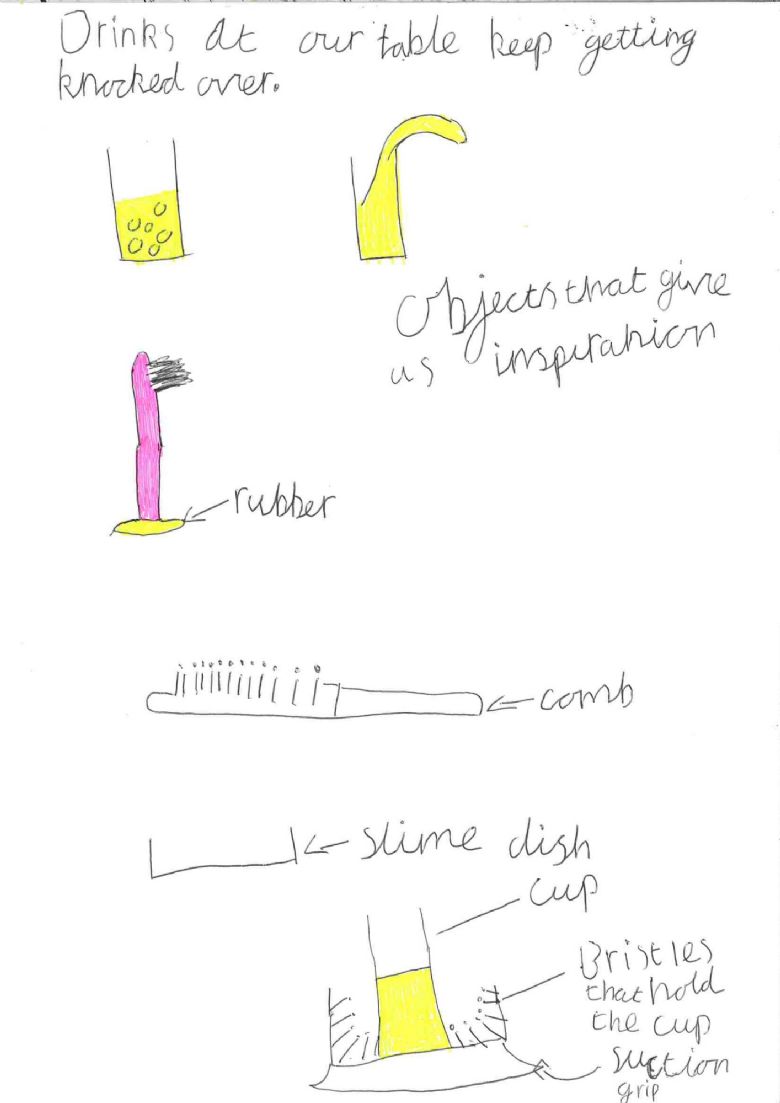 Drinks at our table keep getting
knocked over.
Objects that give
us inspiration
rubber
comb
slime dish
cup
Bristles
that hold
the cup
suction
grip